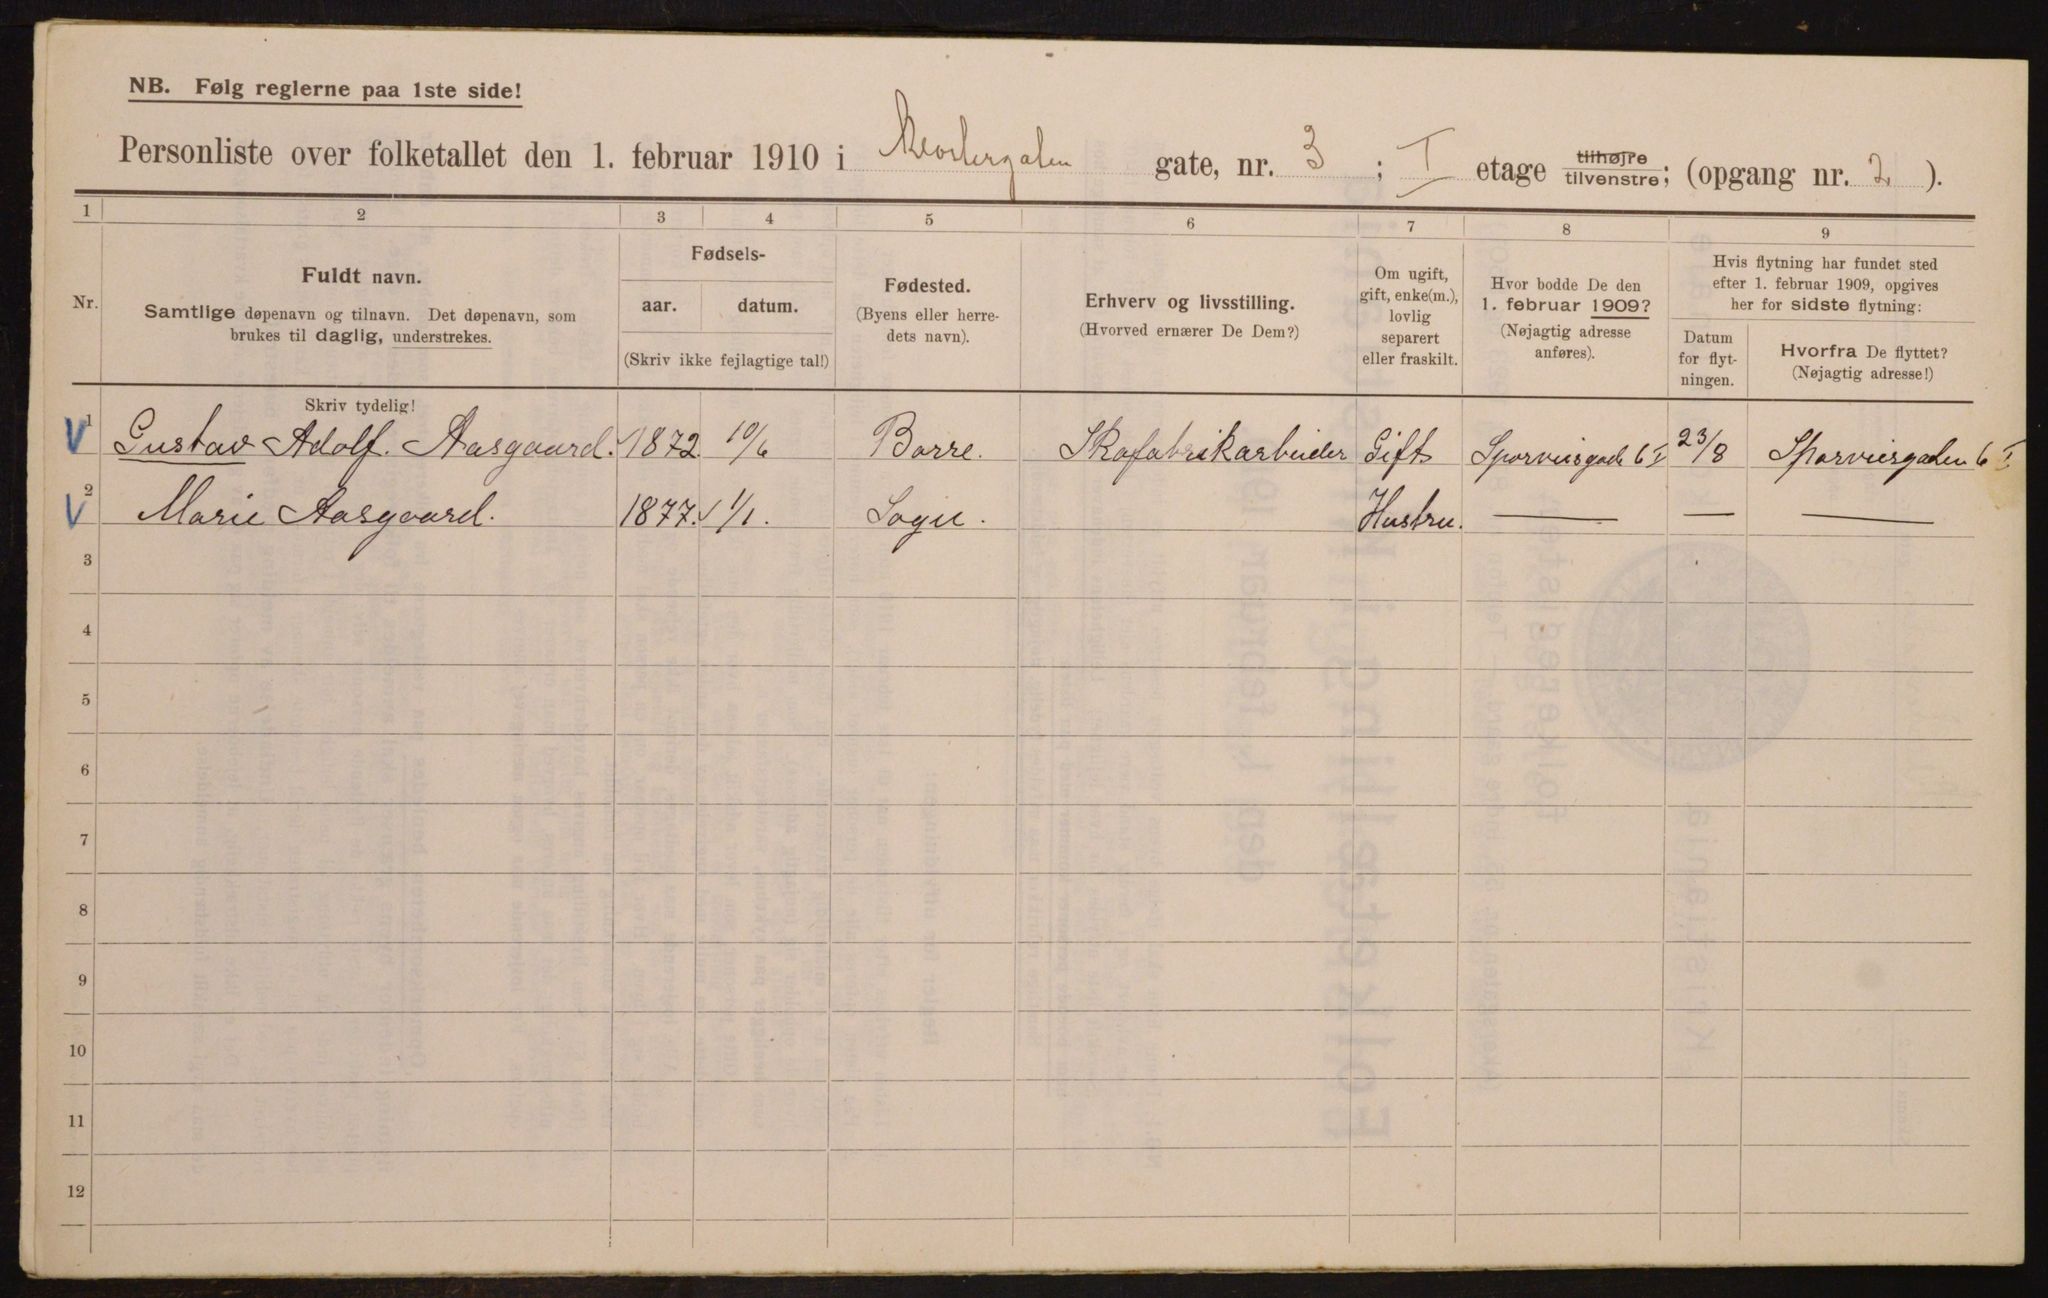 NB. Følg reglerne paa 1ste side!
Personliste over folketallet den 1. februar 1910 i Revierstgaten gate, nr. 3 ; I etage tilhøjre tilvenstre; (opgang nr. 2 ).
1 2 3 4 5 6 7 8 9
Nr.
Fuldt navn.
Samtlige døpenavn og tilnavn. Det døpenavn, som
brukes til daglig, understrekes.
Fødsels-
aar. datum.
(Skriv ikke fejlagtige tal!)
Fødested.
(Byens eller herre-
dets navn).
Erhverv og livsstilling.
(Hvorved ernærer De Dem?)
Om ugift,
gift, enke(m.),
lovlig
separert
eller fraskilt.
Hvor bodde De den
1. februar 1909?
(Nøjagtig adresse
anføres).
Hvis flytning har fundet sted
efter 1. februar 1909, opgives
her for sidste flytning:
Datum
for flyt-
ningen.
Hvorfra De flyttet?
(Nøjagtig adresse!)
Skriv tydelig!
1 Gustav Adolf. Aasgaard. 1872 10/6 Borre. Skofabrikarbeider Gift Sporveisgade 6 I 23/8 Sporveisgaden 6 I
2 Marie Aasgaard. 1877. 1/1. Sogn. Hustru. — — —
3
4
5
6
7
8
9
10
11
12